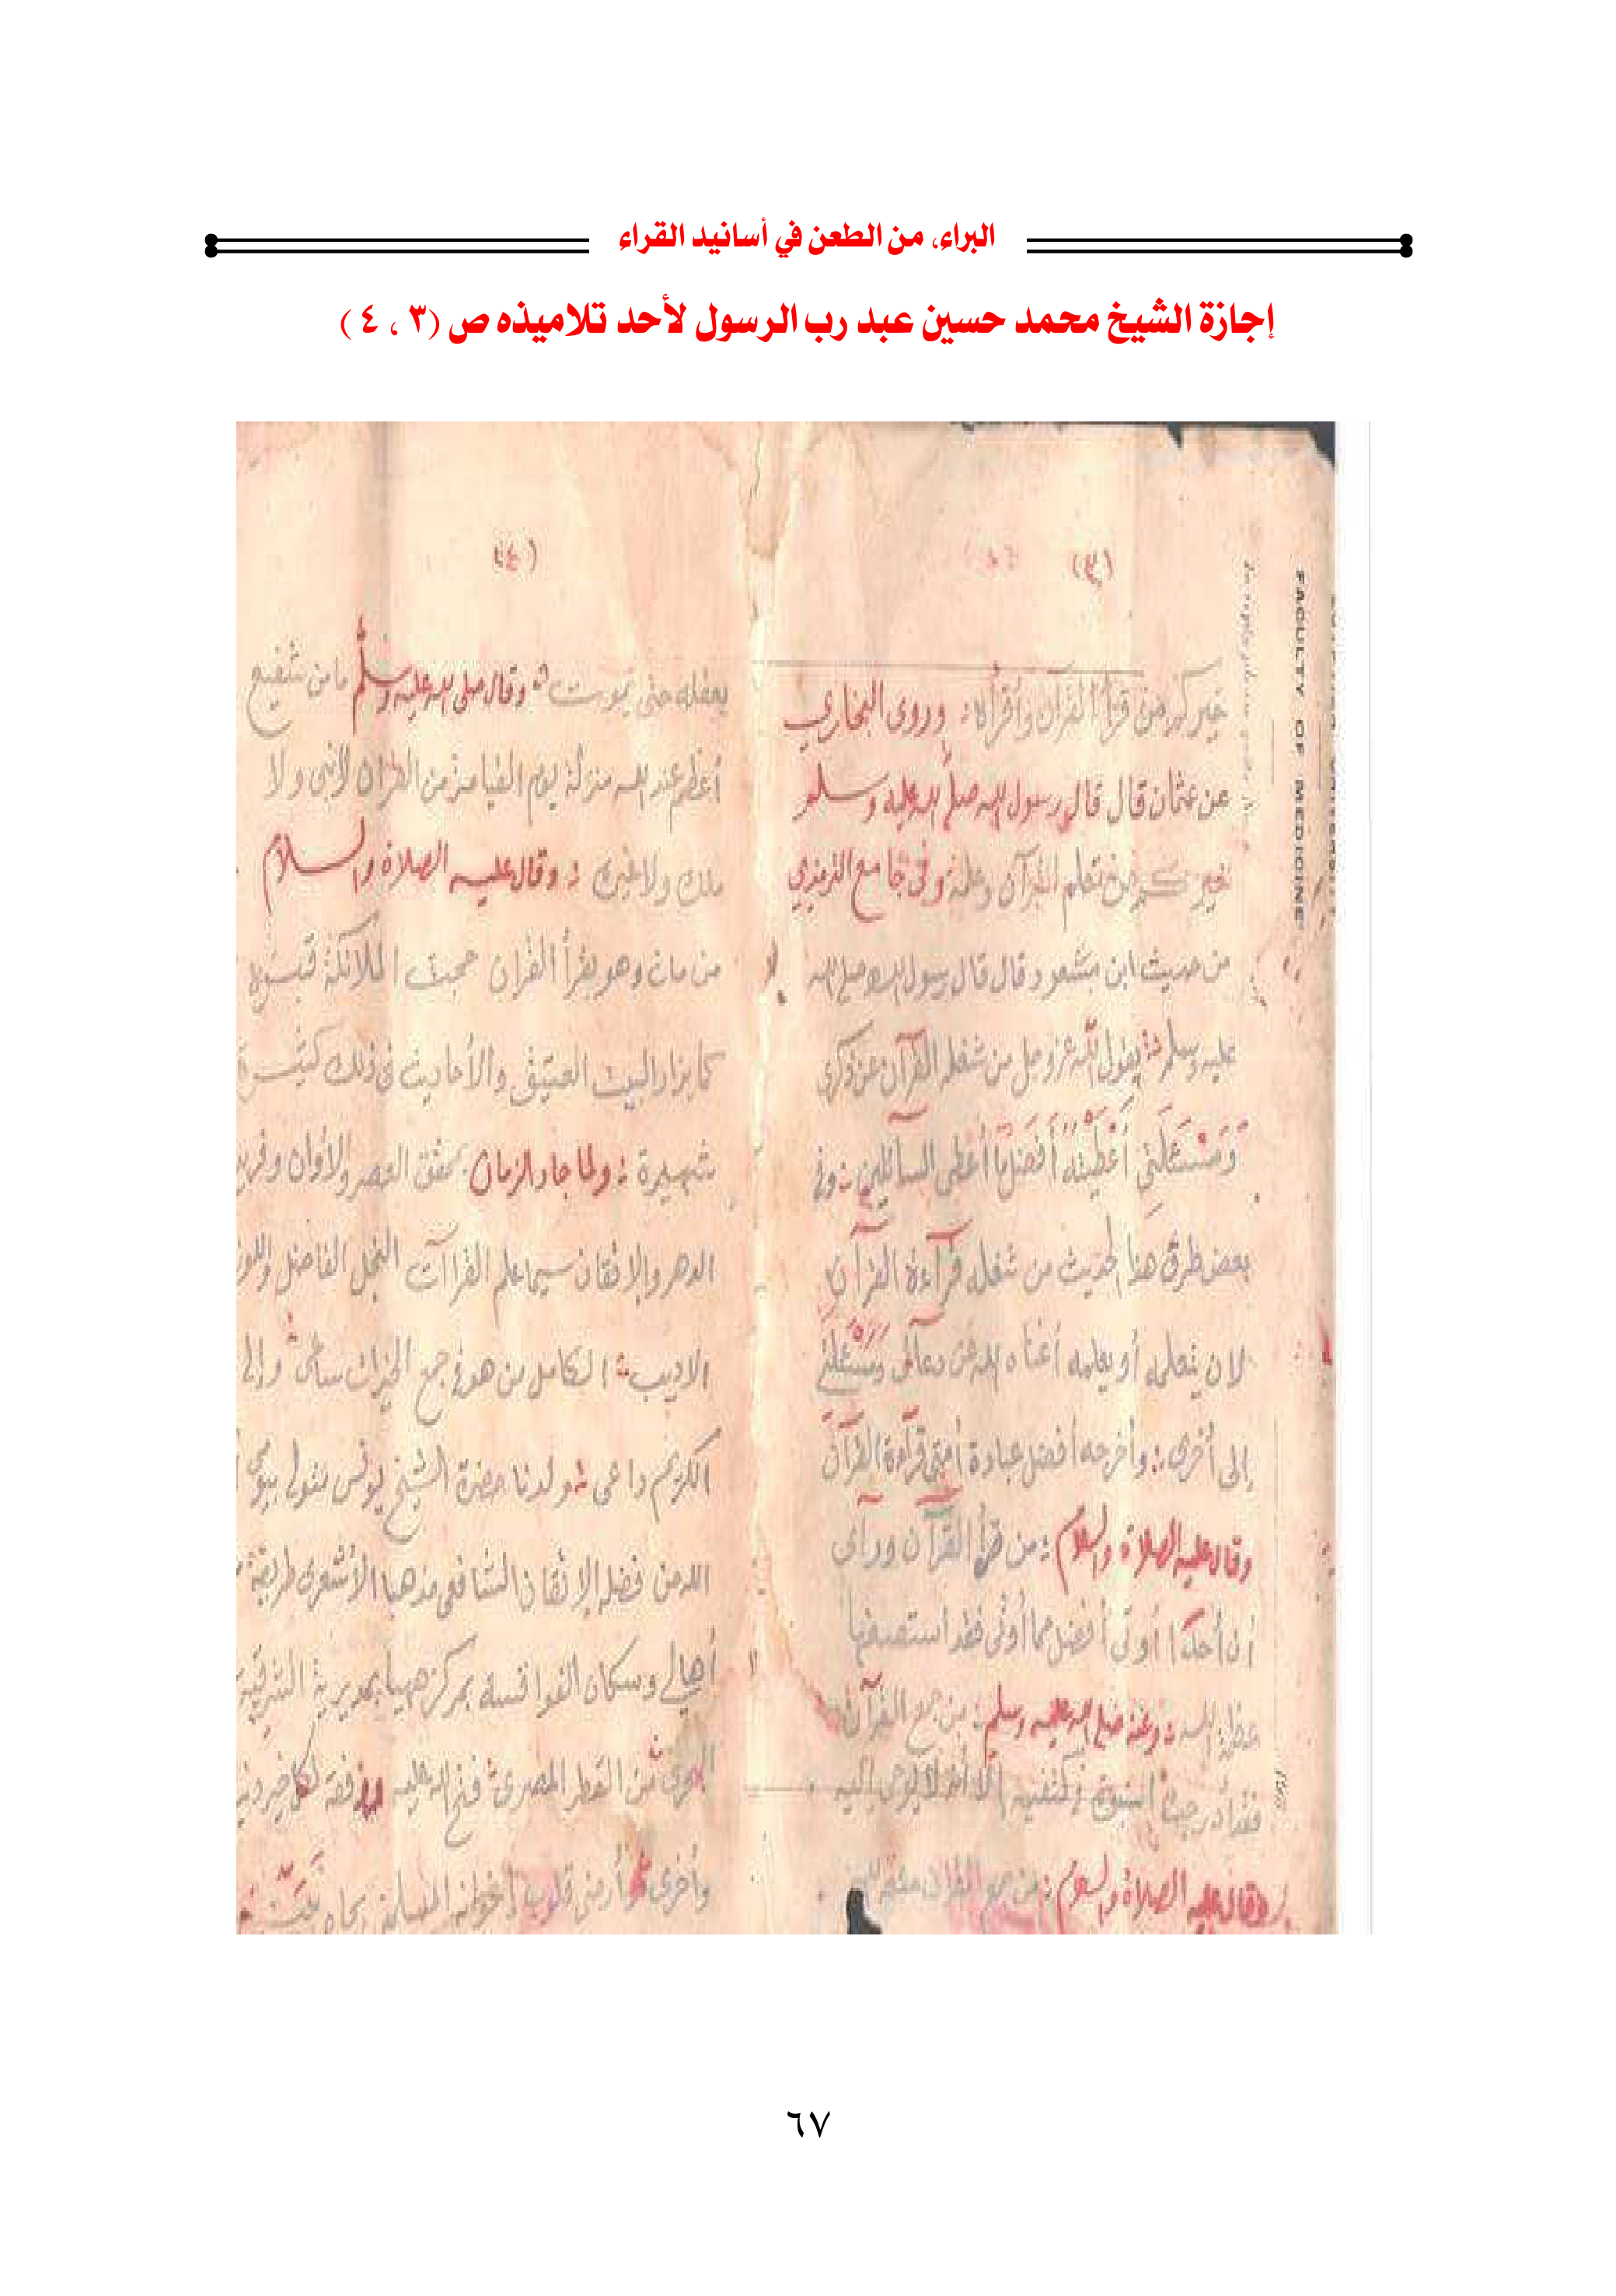 البراء، من الطعن في أسانيد القراء
إجازة الشيخ محمد حسين عبد رب الرسول لأحد تلاميذه ص (٣ ، ٤)
(٣)
خيركم من قرأ القرآن وأقرأه : وروى البخاري
عن عثمان قال قال رسول الله صلى الله عليه وسلم
خيركم من تعلم القرآن وعلمه وفى جامع الترمذي
من حديث ابن مسعود قال قال رسول الله صلى الله
عليه وسلم : يقول الله عز وجل من شغله القرآن عن ذكرى
وَمَسْئَلَتِي أَعْطَيْتُهُ أَفْضَلَ مَا أُعْطِى السآئلين : وفى
بعض طرق هذا الحديث من شغله قرآءة القرآن
لان يتعلمه أو يعلمه
إلى أخرى : وأخرجه أفضل عبادة أمتى قرآءة القرآن
وقال عليه الصلاة والسلام : من قرأ القرآن ورآى
أن أحدًا أوتى أفضل مما أوتى فقد استصغر ما
عظم الله : وعنه صلى الله عليه وسلم : من جمع القرآن
فقد أدرجت النبوة كتفيه إلا أنه لا يوحى إليه
وقال عليه الصلاة والسلام : من جمع القرآن متعه الله
FACULTY OF MEDICINE
(٤)
بعقله حتى يموت : وقال صلى الله عليه وسلم ما من شفيع
أعظم عند الله منزلة يوم القيامة من القرآن لا نبى ولا
ملك ولا غيرى : وقال عليه الصلاة والسلام
من مات وهو يقرأ القرآن حجت الملائكة قبره
كما يزار البيت العتيق والأحاديث فى ذلك كثيرة
شهيرة : ولما جاد الزمان بمحقق العصر والأوان وفريد
الدهر والإتقان سيما علم القرآآت النجل الفاضل واللوز
الاديب : الكامل من هو فى جمع الخيرات ساعى : وإلى
الكريم داعى : ولدنا حضرة الشيخ يونس متولى بيومى
الله من فضله الإتقان الشافعى مذهبا الأشعرى طريقة
أهالي وسكان القواقسة بمركز ههيا بمديرية الشرقية
من القطر المصرى : فتح الله عليه ووفقه لكل خير دنيا
وأخرى وأرضى قلوب إخوانه المسلمين بجاه
٦٧